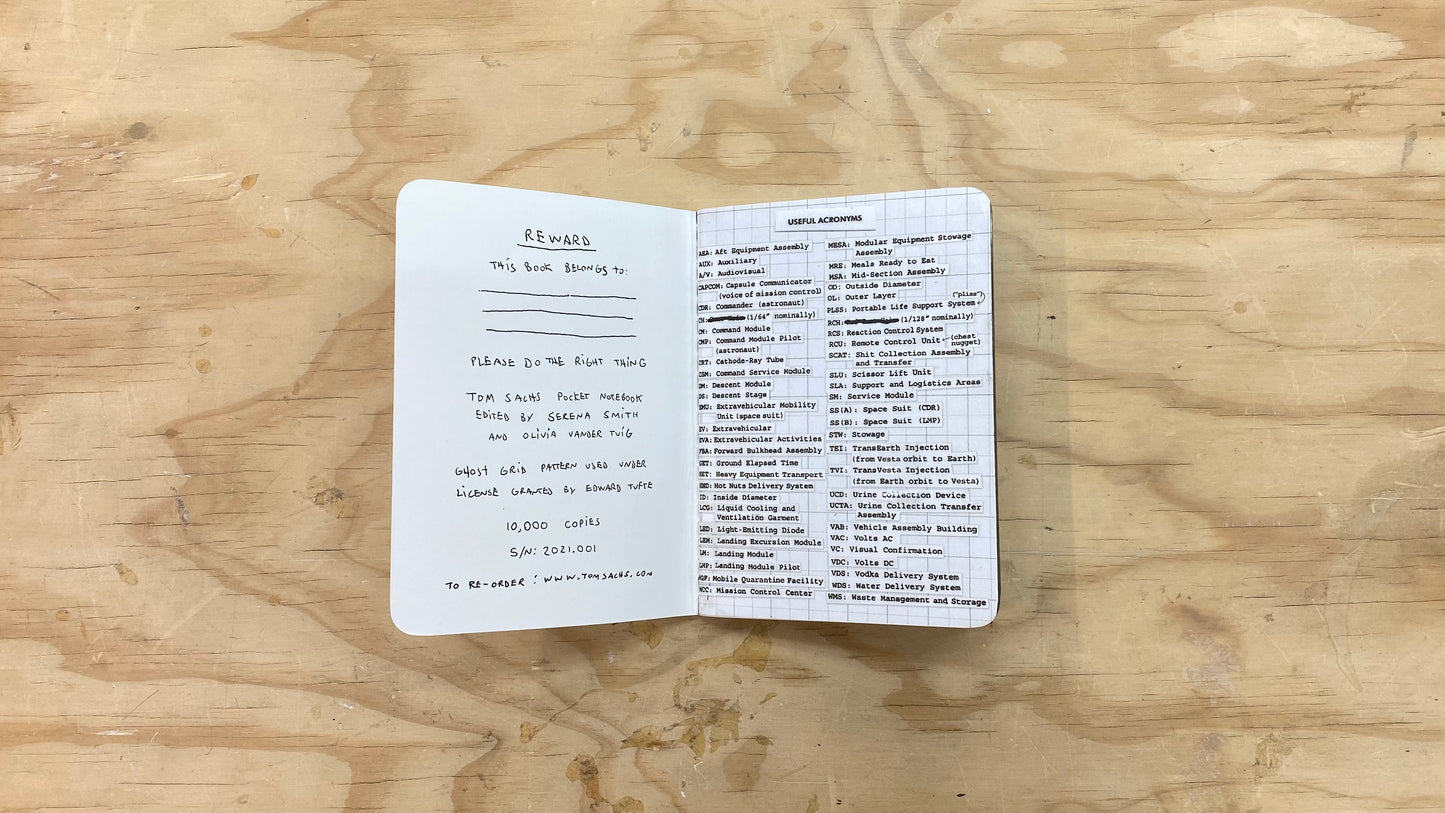 REWARD
THIS BOOK BELONGS TO:
PLEASE DO THE RIGHT THING
TOM SACHS POCKET NOTEBOOK
EDITED BY SERENA SMITH
AND OLIVIA VANDER TUIG
GHOST GRID PATTERN USED UNDER
LICENSE GRANTED BY EDWARD TUFTE
10,000 COPIES
S/N: 2021.001
TO RE-ORDER: WWW.TOMSACHS.COM
USEFUL ACRONYMS
AEA: Aft Equipment Assembly
AUX: Auxiliary
A/V: Audiovisual
CAPCOM: Capsule Communicator
(voice of mission control)
CDR: Commander (astronaut)
CH: (1/64" nominally)
CM: Command Module
CMP: Command Module Pilot
(astronaut)
CRT: Cathode-Ray Tube
CSM: Command Service Module
DM: Descent Module
DS: Descent Stage
EMU: Extravehicular Mobility
Unit (space suit)
EV: Extravehicular
EVA: Extravehicular Activities
FBA: Forward Bulkhead Assembly
GET: Ground Elapsed Time
HET: Heavy Equipment Transport
HND: Hot Nuts Delivery System
ID: Inside Diameter
LCG: Liquid Cooling and
Ventilation Garment
LED: Light-Emitting Diode
LEM: Landing Excursion Module
LM: Landing Module
LMP: Landing Module Pilot
MQF: Mobile Quarantine Facility
MCC: Mission Control Center
MESA: Modular Equipment Stowage
Assembly
MRE: Meals Ready to Eat
MSA: Mid-Section Assembly
OD: Outside Diameter
OL: Outer Layer
("pliss")
PLSS: Portable Life Support System
RCH: (1/128" nominally)
RCS: Reaction Control System
RCU: Remote Control Unit (chest
nugget)
SCAT: Shit Collection Assembly
and Transfer
SLU: Scissor Lift Unit
SLA: Support and Logistics Areas
SM: Service Module
SS(A): Space Suit (CDR)
SS(B): Space Suit (LMP)
STW: Stowage
TEI: TransEarth Injection
(from Vesta orbit to Earth)
TVI: TransVesta Injection
(from Earth orbit to Vesta)
UCD: Urine Collection Device
UCTA: Urine Collection Transfer
Assembly
VAB: Vehicle Assembly Building
VAC: Volts AC
VC: Visual Confirmation
VDC: Volts DC
VDS: Vodka Delivery System
WDS: Water Delivery System
WMS: Waste Management and Storage